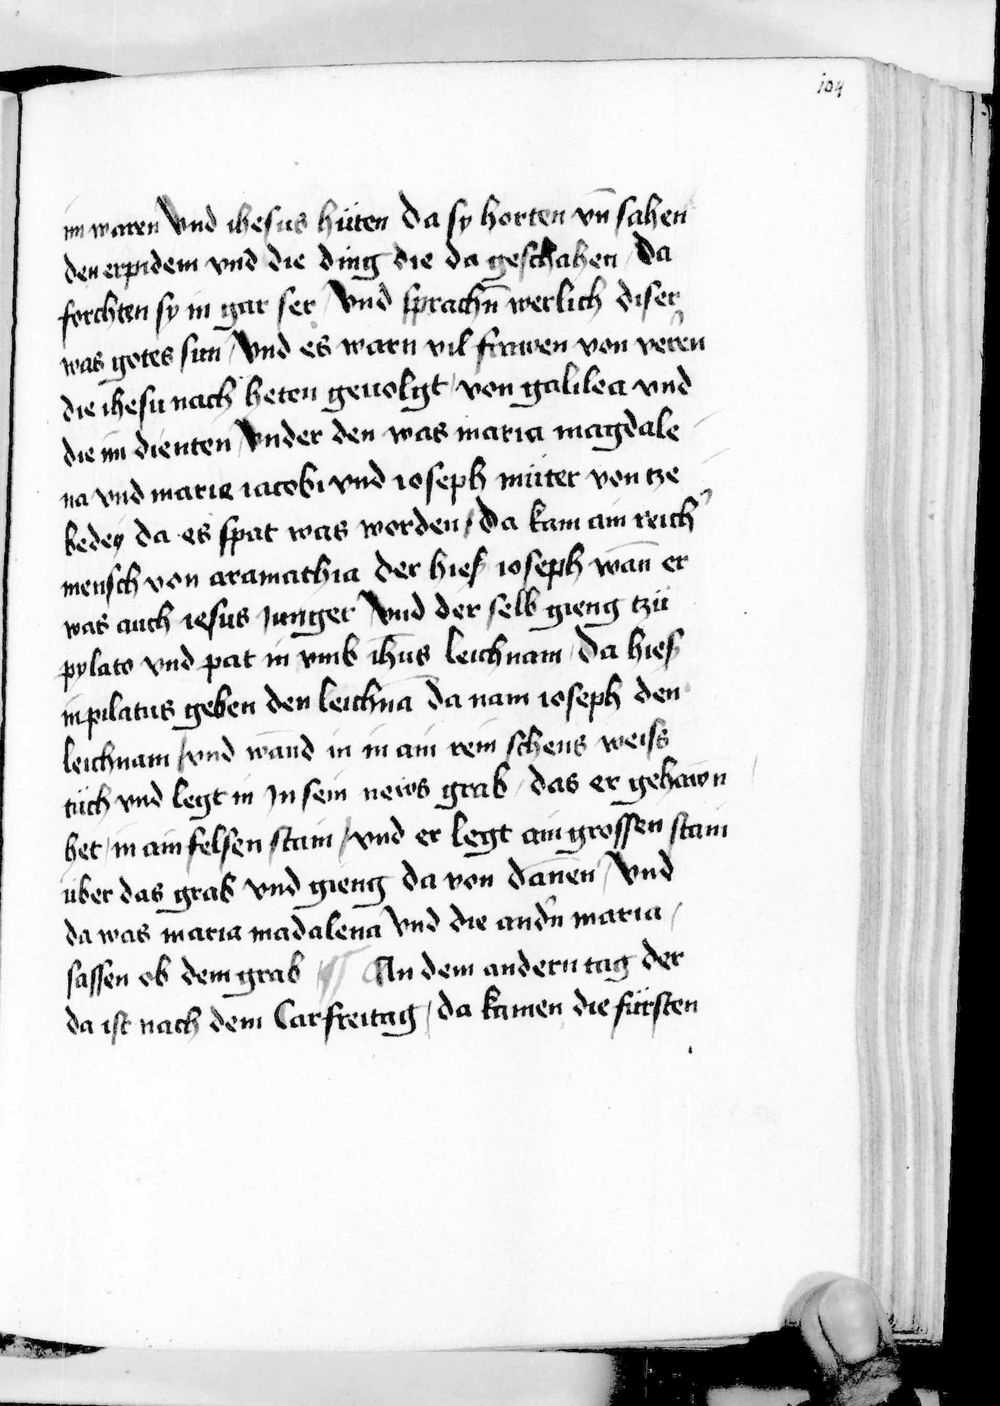 104
im waren Vnd ihesus hüten da sy horten vn̄ sahen
den erpidem vnd die ding die da geschahen / Da
forchten sy in gar ser / Vnd sprachn̄ werlich diser
was gotes sun / Vnd es warn vil frawen von verr̄n
die ihesu nach heten geuolgt / von galilea vnd
die im dienten / Vnder den was maria magdale
na vnd maria iacobi vnd ioseph müter von tze
bedey da es spat was worden / Da kam ain reich
mensch von aramathia der hies ioseph wān er
was auch iesus Junger Vnd der selb gieng tzü
pylato vnd pat in vmb ihūs leichnam / Da hies
in pilatus geben den leichnā da nam ioseph den
leichnam / vnd wand in in ain rein schens weiss
tüch vnd legt in Jn sein news grab / das er gehawn
het / in ain felsen stain / vnd er legt ain grossen stain
über das grab vnd gieng da von dānen / Vnd
da was maria madalena Vnd die andn̄ maria /
sassen ob dem grab / An dem andern tag der
da ist nach dem Carfreitag / da kamen die fürsten